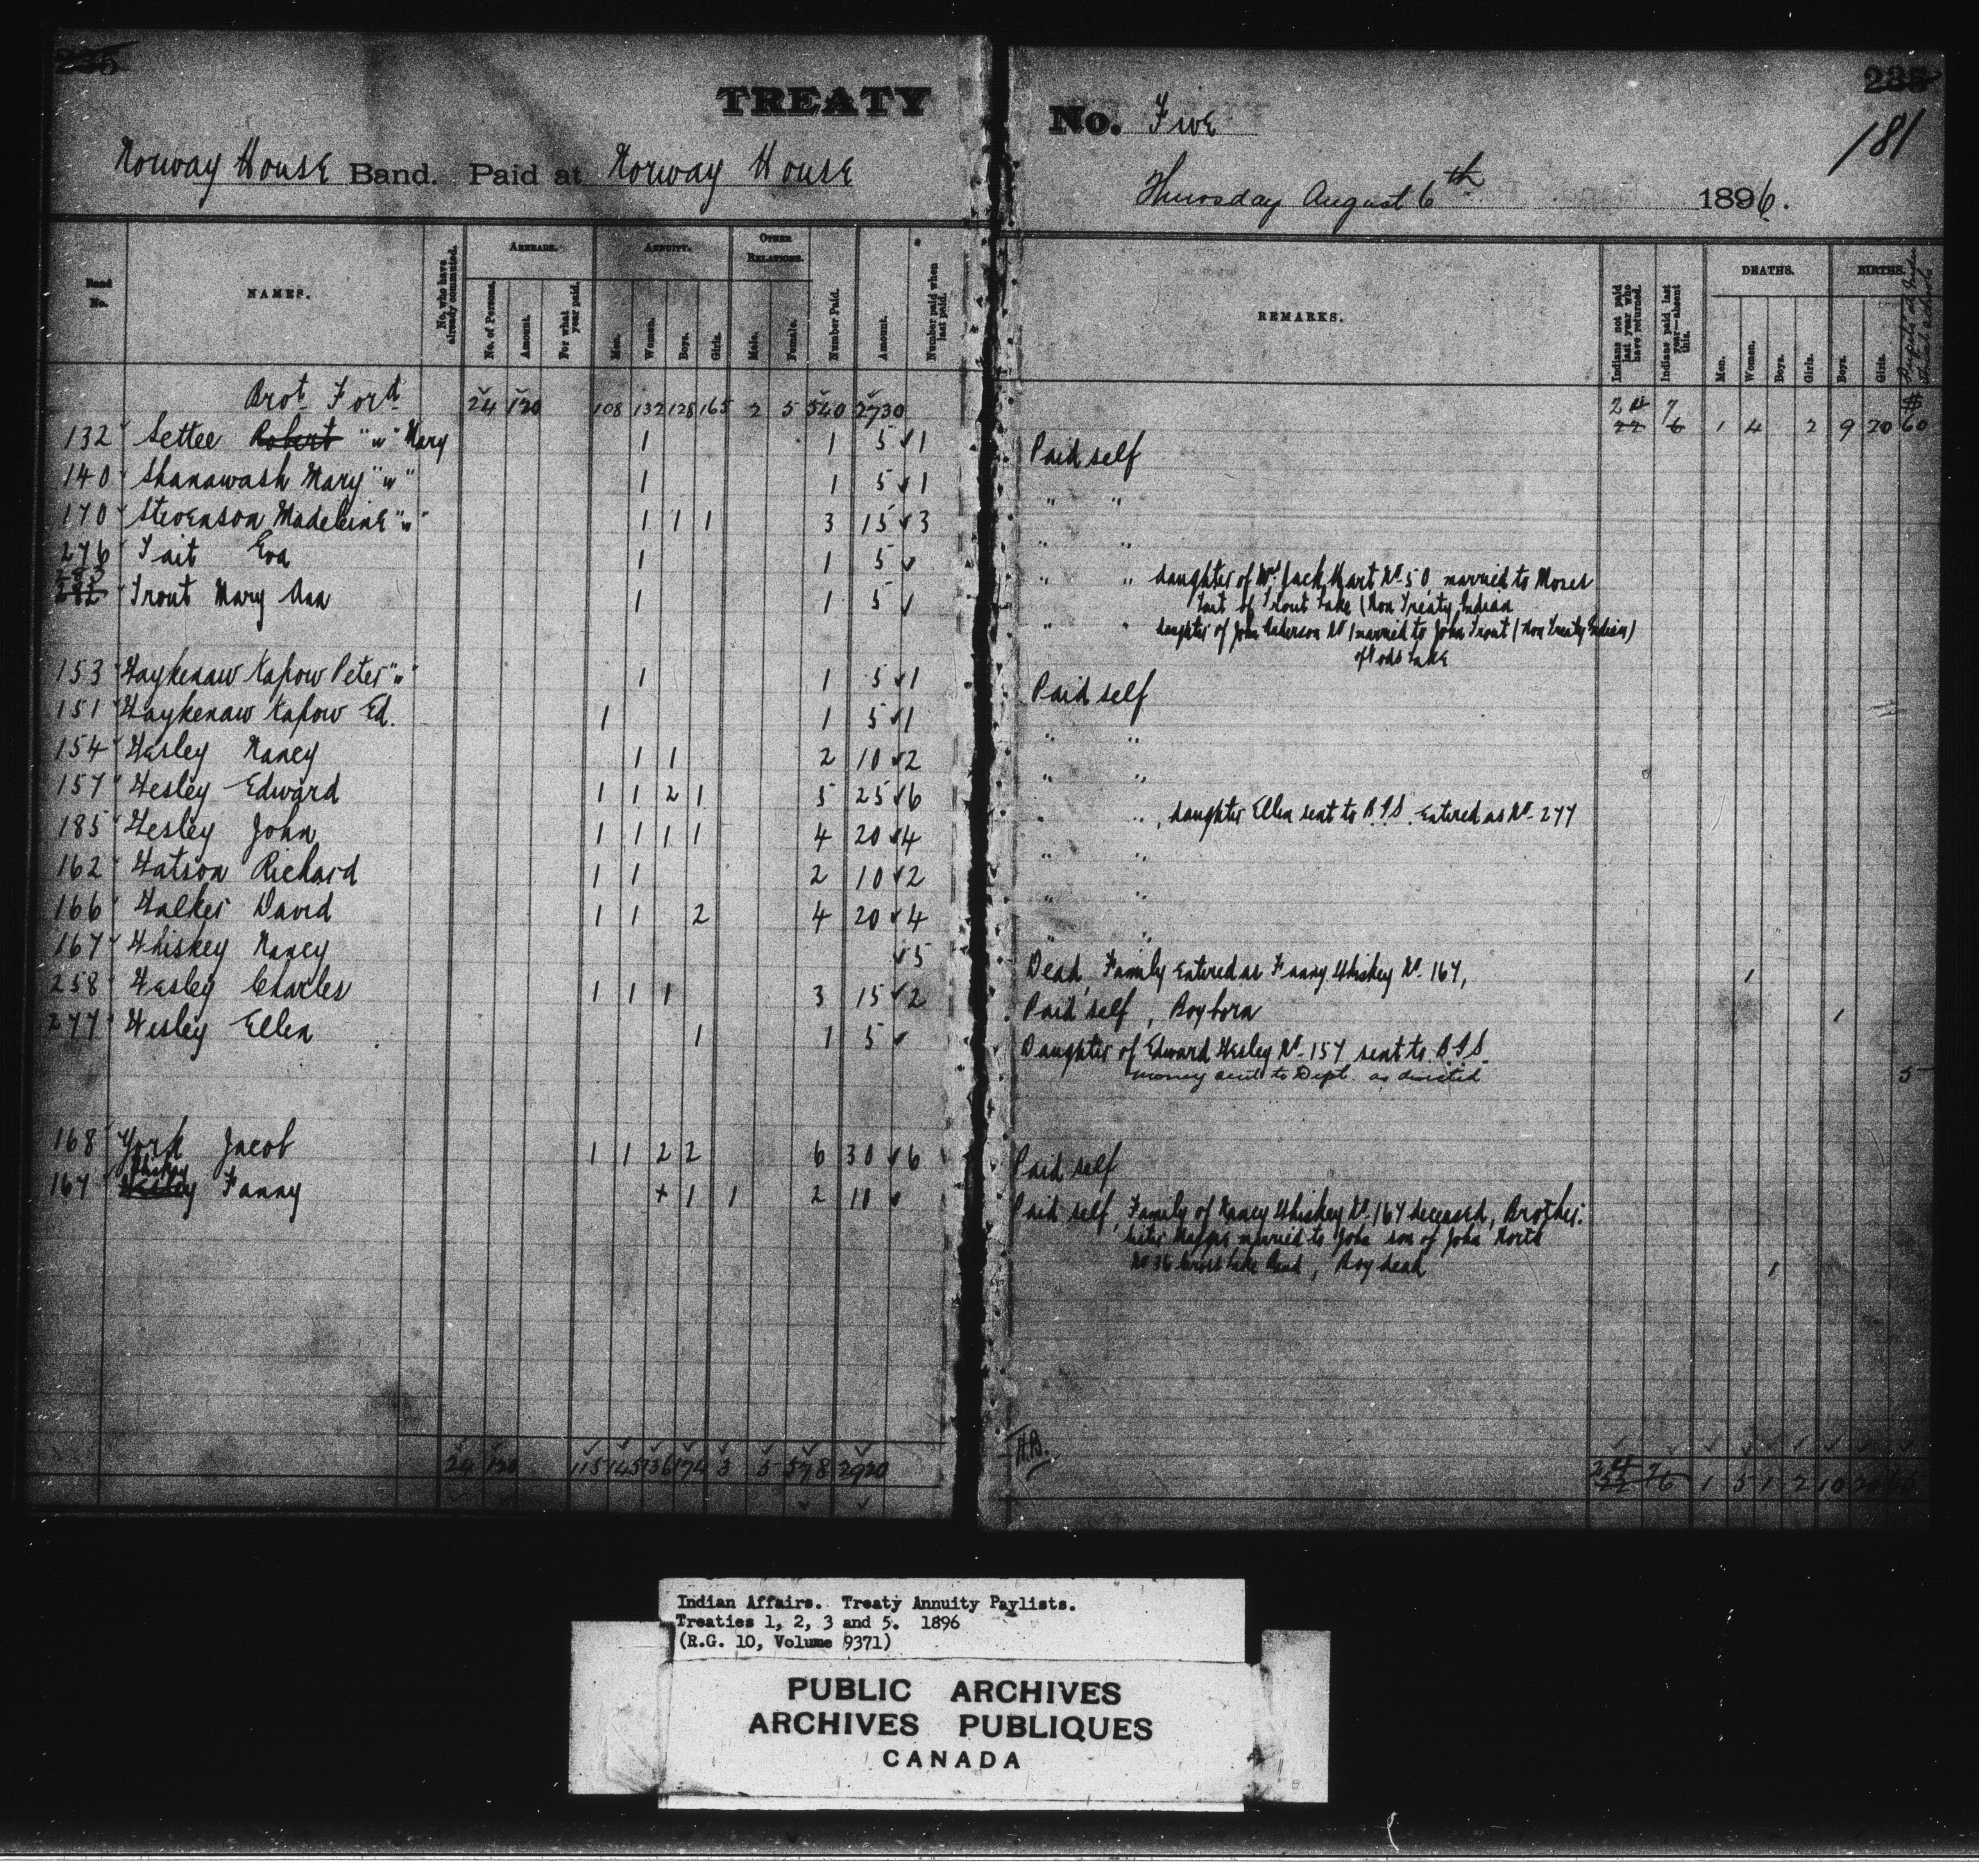 235
TREATY No. Five
235
181
Norway House Band. Paid at Norway House
Thursday August 6th 1896.
Band No.
NAMES.
No. who have already commuted.
ARREARS.
No. of Persons.
Amount.
For what year paid.
ANNUITY.
Men.
Women.
Boys.
Girls.
OTHER RELATIONS.
Male.
Female.
Number Paid.
Amount.
Number paid when last paid.
REMARKS.
Indians not paid last year who have returned.
Indians paid last year—absent this.
DEATHS.
Men.
Women.
Boys.
Girls.
BIRTHS.
Boys.
Girls.
Brot Ford 24 120 108 132 128 165 2 5 540 2730 7 6 1 4 2 9 20 $60
132 Settee Robert "w" Mary 1 1 5 1 Paid self
140 Shanawash Mary "w" 1 1 5 1 " "
170 Stevenson Madeleine "w" 1 1 1 3 15 3 " "
276 Tait Eva 1 1 5 " " daughter of Wm Jack Hart No 50 married to Moses
Tait of Trout Lake (Non Treaty Indian
282 Trout Mary Ann 1 1 5 " " daughter of John Anderson No 1 married to John Trout (Non Treaty Indian)
of Gods Lake
153 Waykenaw Kapow Peter "w" 1 1 5 1 Paid self
151 Waykenaw Kapow Ed. 1 1 5 1 " "
154 Wesley Nancy 1 1 2 10 2 " "
157 Wesley Edward 1 1 2 1 5 25 6 " ", daughter Ellen sent to B.I.S. Entered as No 277
185 Wesley John 1 1 1 1 4 20 4 " "
162 Watson Richard 1 1 2 10 2 " "
166 Walker David 1 1 2 4 20 4 " "
167 Whiskey Nancy 5 Dead, Family entered as Fanny Whiskey No 167, 1
258 Wesley Charles 1 1 1 3 15 2 Paid self, Boy born 1
277 Wesley Ellen 1 1 5 Daughter of Edward Wesley No 157 sent to B.I.S.
money sent to Dept. as directed 5
168 York Jacob 1 1 2 2 6 30 6 Paid self
Whiskey
167 Wesley Fanny + 1 1 2 10 Paid self, Family of Nancy Whiskey No 167 deceased, Brother.
sister Maggie married to John son of John North
No 36 Cross Lake Band, Boy dead 1
H.B.
24 120 115 145 136 174 3 5 578 2920 7 6 1 5 1 2 10
Indian Affairs. Treaty Annuity Paylists.
Treaties 1, 2, 3 and 5. 1896
(R.G. 10, Volume 9371)
PUBLIC ARCHIVES
ARCHIVES PUBLIQUES
CANADA